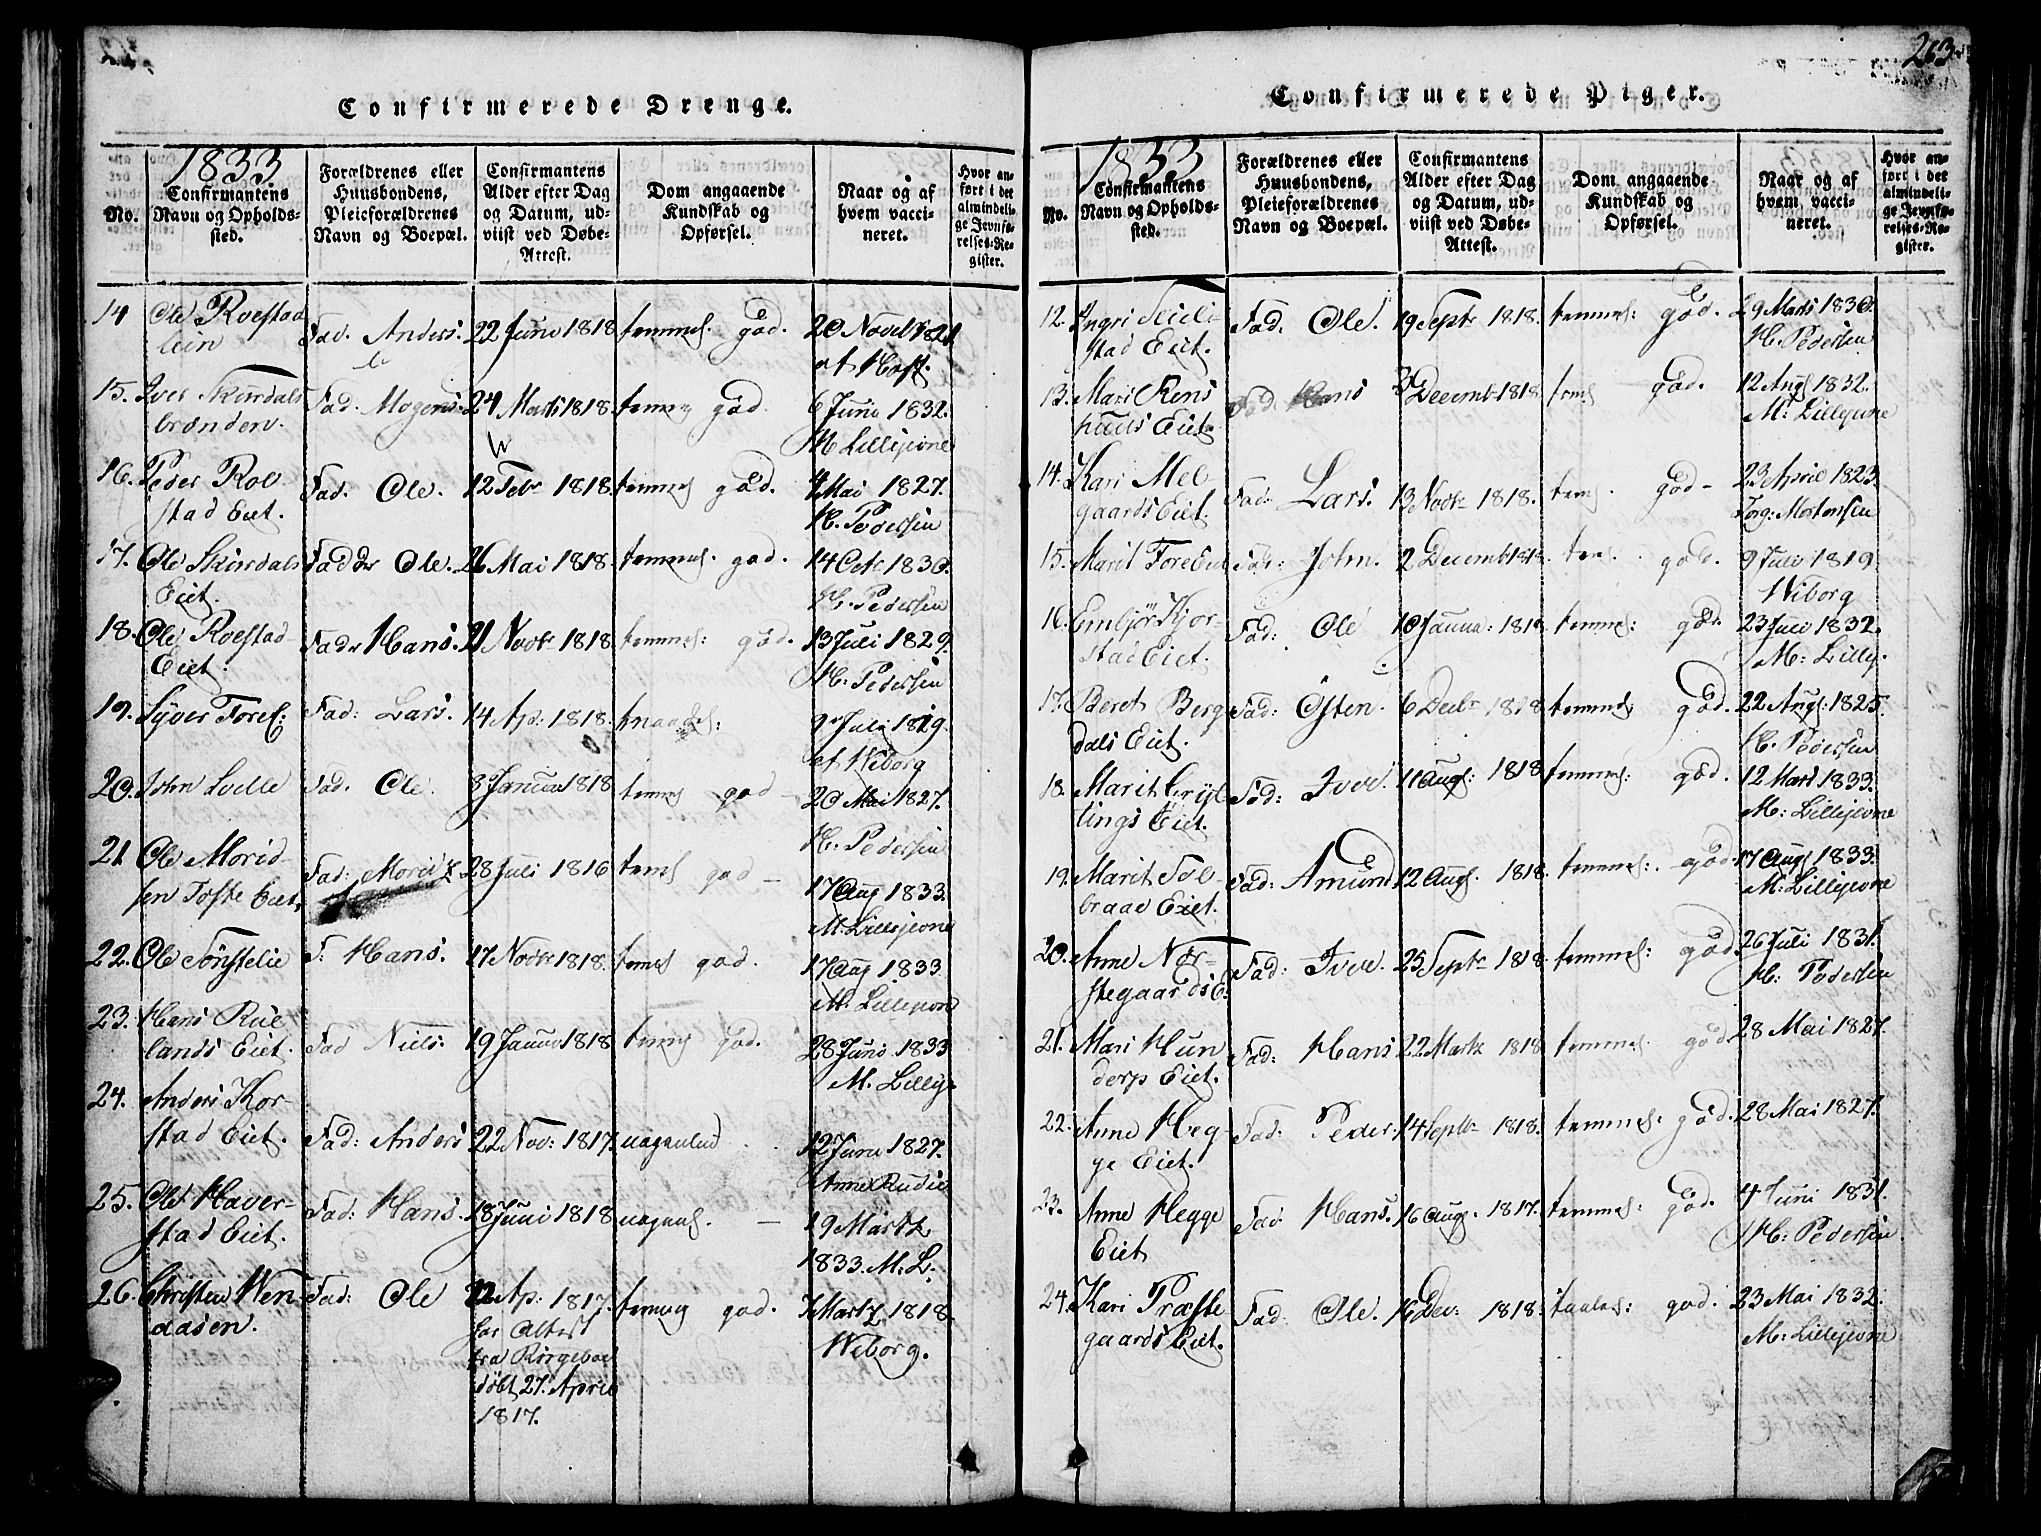 263
Confirmerede Drenge.
1833
No.
Confirmantens
Navn og Opholds-
sted.
Forældrenes eller
Huusbondens,
Pleieforældrenes
Navn og Boepæl.
Confirmantens
Alder efter Dag
og Datum, ud-
viist ved Døbe-
Attest.
Dom angaaende
Kundskab og
Opførsel.
Naar og af
hvem vacci-
neret.
Hvor an-
ført i det
almindeli-
ge Jevnfø-
relses-Re-
gister.
14 Ole Roestad Fad. Anders. 22 Juni 1818 temmel. god.
af
15. Iver Skurdals Fad. Mogens. 24 Marts 1818. god 6 Juni 1832.
brænden. M Lillejevne
16. Peder Rol Fad. Ole. 12 Febr 1818. god. 4 Mai 1827.
stad Eiet. H. Pedersen
17. Ole Skurdals Fader Ole. 26 Mai 1818. temmel. god. 14 Octb 1830.
Eiet. H. Pedersen
18. Ole Roestad Fader Hans. 21 Novbr 1818 temmel: god. 13 Juli 1829.
Eiet: H. Pedersen
19. Syver Fad: Lars. 14 Ap: 1818. 9 Juli 1819.
af Wiborg
20. John Fad. Ole. 8 Januar 1818 god 20 Mai 1827.
H. Pedersen
21 Ole Morid- Fad: Moritz 28 Juli 1816 god
sen Tofte Eiet 17 Aug 1833.
M. Lillejevne
22. Ole F. Hans. 17 Novbr 1818. god. 17 Aug 1833.
M. Lillejevne
23. Hans Rul
lands Eiet. Fad Niels. 19 Januar 1818 god. 28 Juni 1833
M. Lillej.
24. Anders Kor-
stad Eiet. Fad: Anders 22 Nov: 1817. 12 Juni 1827.
Anne
25. Ole Haver- Fad: Hans. 18 Juni 1818 19 Martz
stad Eiet. 1833. M. L.
26. Christen Wen Fad: Ole 22 Ap: 1817. god. 7 Martz 1818.
aasen. har Attest Wiborg.
fra Ringeboe
døbt 27. April
1817.
Confirmerede Piger.
1833
No.
Confirmantens
Navn og Opholds-
sted.
Forældrenes eller
Huusbondens,
Pleieforældrenes
Navn og Boepæl.
Confirmantens
Alder efter Dag
og Datum, ud-
viist ved Døbe-
Attest.
Dom angaaende
Kundskab og
Opførsel.
Naar og af
hvem vacci-
neret.
Hvor an-
ført i det
almindeli-
ge Jevnfø-
relses-Re-
gister.
12. Ingri Fad: Ole. 19 Septr 1818. temmel: god. 29 Marts 1830.
stad Eiet. H. Pedersen
13. Mari Fad Hans Decemb 1818. god. 12 Aug 1832.
Eiet. M: Lillejevne
14. Kari Mel Fad: Lars. 13 Novbr 1818. god- 23 April 1823.
gaards Eiet. Jørg: Mortensen
15. Marit Fad: John. 2 Decemb 1818. god. 9 Juli 1819.
Wiborg
16. Kjor- Fad: Ole 10 Janua: 1818. temmel: god. 23 Juli 1832.
stad Eiet. M: Lillej.
17. Beret Berg Fad: Østen. 6 Decbr 1818 temmel: god. 22 Aug: 1825.
dals Eiet. H. Pedersen
18. Marit Gryt Fad: Iver. 11 Aug: 1818 temmel: god. 12 Mart 1833.
tings Eiet. M: Lillejevne
19. Marit Sol- Fad: Amund 12 Aug. 1818. temmel: god. 17 Aug 1833.
braae Eiet. M: Lillejevne
20. Anne Nor- Fad: Iver. 25 Septr 1818. temmel: god. 26 Juli 1831.
stegaards E: H: Pedersen
21. Mari Hun Fad: Hans 22 Martz 1818 god 28 Mai 1827.
derp Eiet.
22. Anne Heg- Fad: Peder. 14 Septbr 1818. temmel: god. 28 Mai 1827.
ge Eiet.
23. Anne Hegge Fad: Hans. 16 Aug. 1817. temmel: god. 4 Juni 1831.
Eiet H: Pedersen
24. Kari Præste Fad: Ole. 16 Dec: 1818. god. 23 Mai 1832.
gaards Eiet. M: Lillejevne